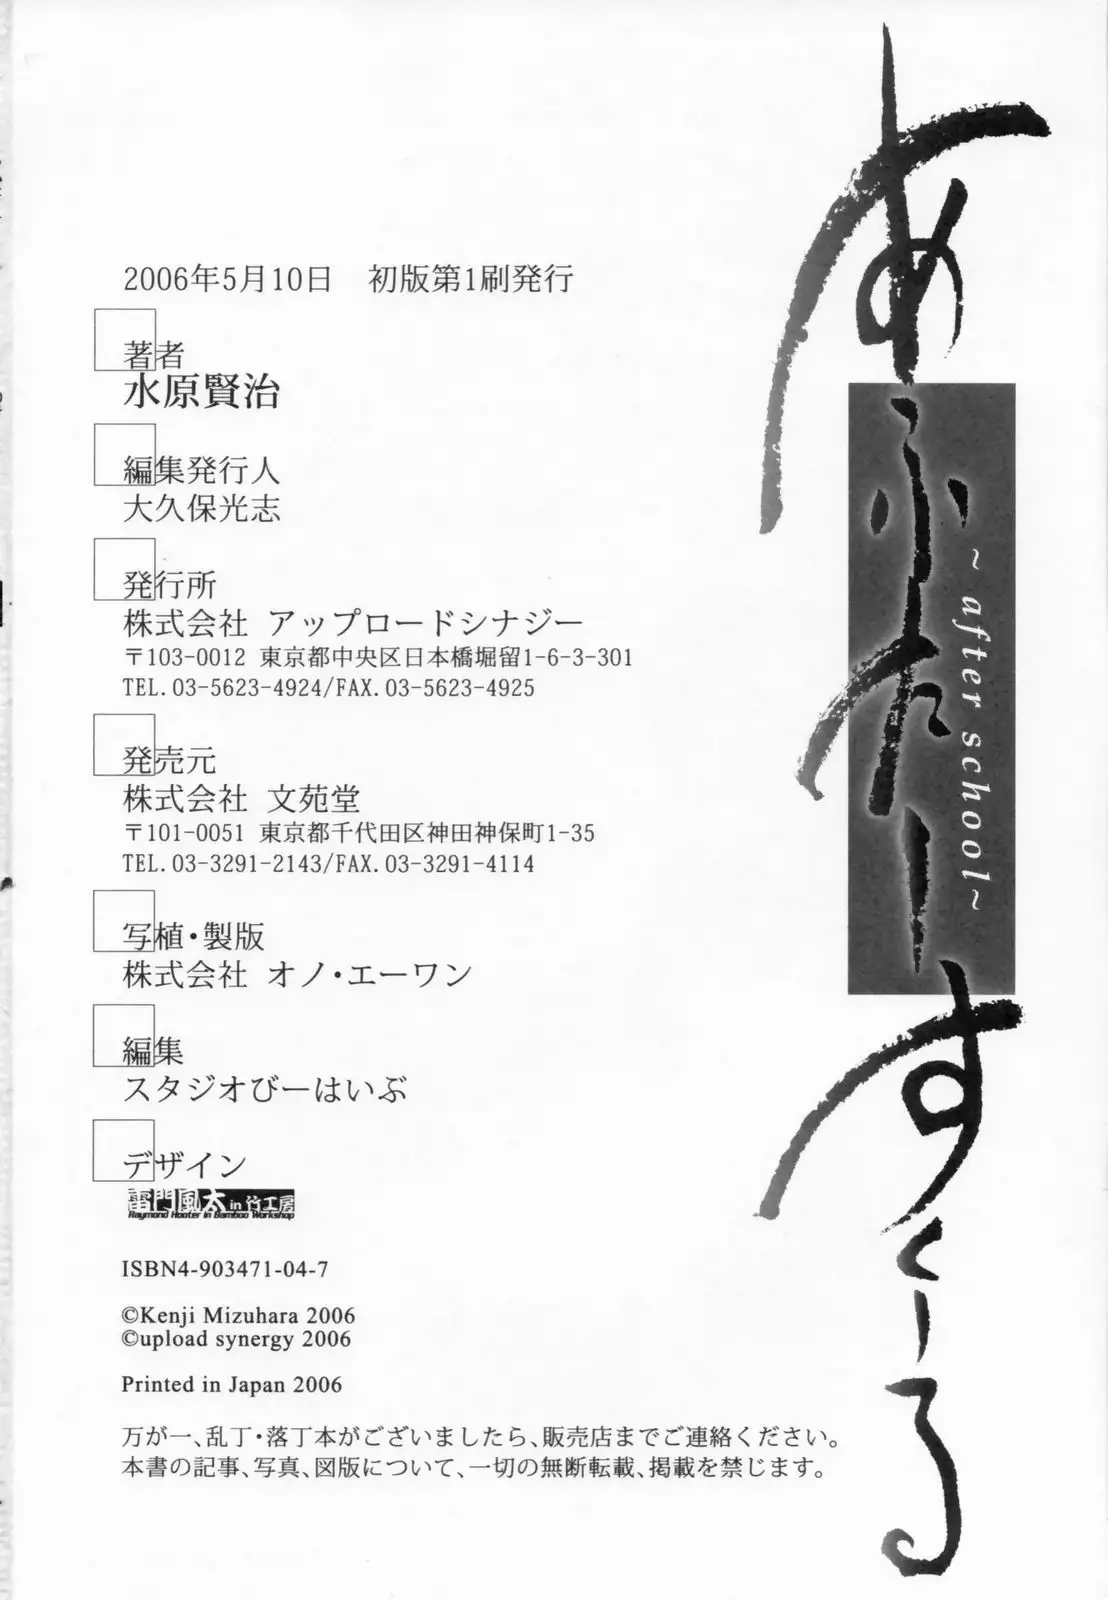 あふたーすくーる
~ after school ~
2006年5月10日　初版第1刷発行
著者
水原賢治
編集発行人
大久保光志
発行所
株式会社 アップロードシナジー
〒103-0012 東京都中央区日本橋堀留1-6-3-301
TEL.03-5623-4924/FAX.03-5623-4925
発売元
株式会社 文苑堂
〒101-0051 東京都千代田区神田神保町1-35
TEL.03-3291-2143/FAX.03-3291-4114
写植・製版
株式会社 オノ・エーワン
編集
スタジオびーはいぶ
デザイン
雷門風太 in 竹工房
Raymond Hooter in Bamboo Workshop
ISBN4-903471-04-7
©Kenji Mizuhara 2006
©upload synergy 2006
Printed in Japan 2006
万が一、乱丁・落丁本がございましたら、販売店までご連絡ください。
本書の記事、写真、図版について、一切の無断転載、掲載を禁じます。